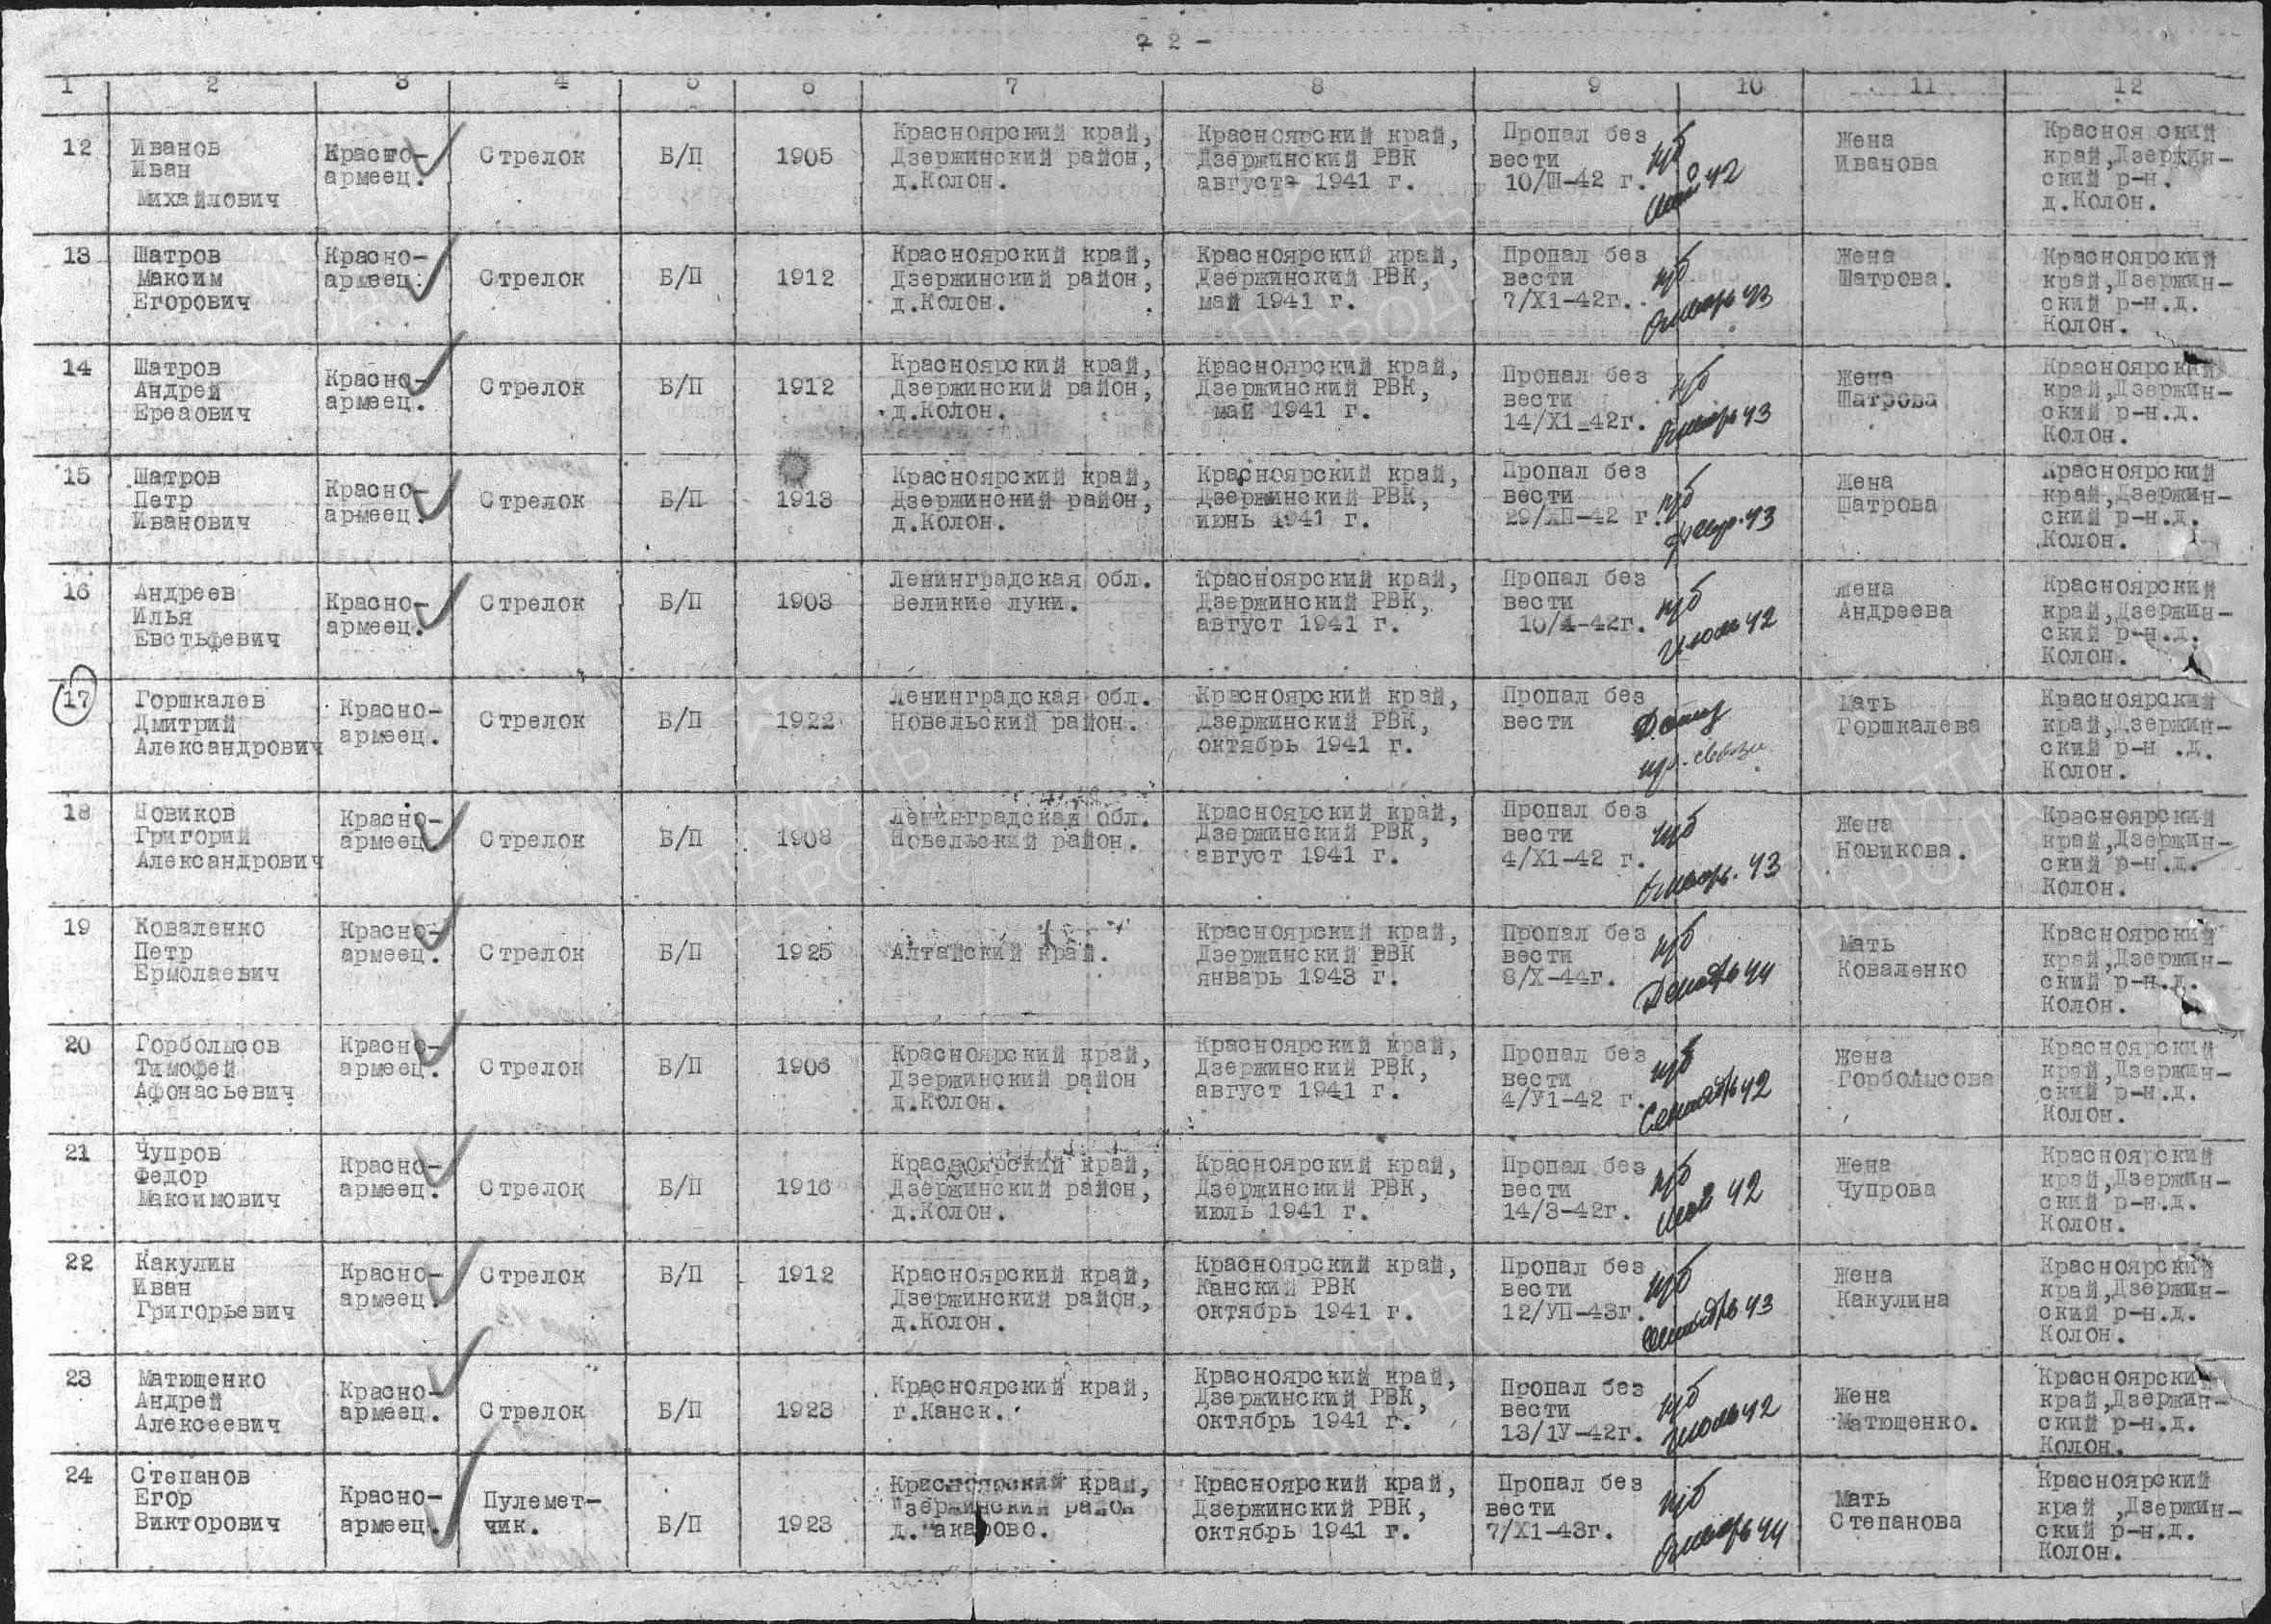 2 -
1 2 3 4 5 6 7 8 9 10 11 12
12 Иванов Иван Михайлович Красно-армеец. Стрелок Б/П 1905 Красноярский край, Дзержинский район, д.Колон. Красноярский край, Дзержинский РВК августа 1941 г. Пропал без вести 10/Ш-42 г. п/б 42 Жена Иванова Краснояский край,Дзержин-ский р-н. д.Колон.
13 Шатров Максим Егорович Красно-армеец. Стрелок Б/П 1912 Красноярский край, Дзержинский район, д.Колон. Красноярский край, Дзержинский РВК, май 1941 г. Пропал без вести 7/Х1-42г. п/б январь 43 Жена Шатрова. Красноярский край,Дзержин-ский р-н.д. Колон.
14 Шатров Андрей Ереаович Красно-армеец. Стрелок Б/П 1912 Красноярский край, Дзержинский район, д.Колон. Красноярский край, Дзержинский РВК, май 1941 г. Пропал без вести 14/Х1-42г. п/б январь 43 Жена Шатрова Красноярский край,Дзержин-ский р-н.д. Колон.
15 Шатров Петр Иванович Красно-армеец. Стрелок Б/П 1913 Красноярский край, Дзержинский район, д.Колон. Красноярский край, Дзержинский РВК, июнь 1941 г. Пропал без вести 29/ХП-42 г. п/б февр. 43 Жена Шатрова Красноярский край,Дзержин-ский р-н.д. Колон.
16 Андреев Илья Евстьфевич Красно-армеец. Стрелок Б/П 1903 Ленинградская обл. Великие луки. Красноярский край, Дзержинский РВК, август 1941 г. Пропал без вести 10/4-42г. п/б июль 42 Жена Андреева Красноярский край,Дзержин-ский р-н.д. Колон.
17 Горшкалев Дмитрий Александрович Красно-армеец. Стрелок Б/П 1922 Ленинградская обл. Новельский район. Красноярский край, Дзержинский РВК, октябрь 1941 г. Пропал без вести Мать Горшкалева Красноярский край,Дзержин-ский р-н .д. Колон.
18 Новиков Григорий Александрович Красно-армеец. Стрелок Б/П 1908 Ленинградская обл. Новельский район. Красноярский край, Дзержинский РВК, август 1941 г. Пропал без вести 4/Х1-42 г. п/б январь. 43 Жена Новикова. Красноярский край,Дзержин-ский р-н.д. Колон.
19 Коваленко Петр Ермолаевич Красно-армеец. Стрелок Б/П 1925 Алтайский край. Красноярский край, Дзержинский РВК январь 1943 г. Пропал без вести 8/Х-44г. п/б Декабрь 44 Мать Коваленко Красноярский край,Дзержин-ский р-н.д. Колон.
20 Горболысов Тимофей Афонасьевич Красно-армеец. Стрелок Б/П 1906 Красноярский край, Дзержинский район д.Колон. Красноярский край, Дзержинский РВК, август 1941 г. Пропал без вести 4/У1-42 г. п/б Сентябрь 42 Жена Горболысова Красноярский край,Дзержин-ский р-н.д. Колон.
21 Чупров Федор Максимович Красно-армеец. Стрелок Б/П 1916 Красноярский край, Дзержинский район, д.Колон. Красноярский край, Дзержинский РВК, июль 1941 г. Пропал без вести 14/3-42г. п/б 42 Жена Чупрова Красноярский край,Дзержин-ский р-н.д. Колон.
22 Какулин Иван Григорьевич Красно-армеец. Стрелок Б/П 1912 Красноярский край, Дзержинский район, д.Колон. Красноярский край, Канский РВК октябрь 1941 г. Пропал без вести 12/УП-43г. п/б Сентябрь 43 Жена Какулина Красноярский край,Дзержин-ский р-н.д. Колон.
23 Матющенко Андрей Алексеевич Красно-армеец. Стрелок Б/П 1923 Красноярский край, г.Канск. Красноярский край, Дзержинский РВК, октябрь 1941 г. Пропал без вести 13/1У-42г. п/б июль 42 Жена Матющенко. Красноярский край,Дзержин-ский р-н.д. Колон.
24 Степанов Егор Викторович Красно-армеец. Пулемет-чик. Б/П 1923 Красноярский край, Дзержинский район д. Красноярский край, Дзержинский РВК, октябрь 1941 г. Пропал без вести 7/Х1-43г. п/б январь 44 Мать Степанова Красноярский край ,Дзержин-ский р-н.д. Колон.
ПАМЯТЬ НАРОДА